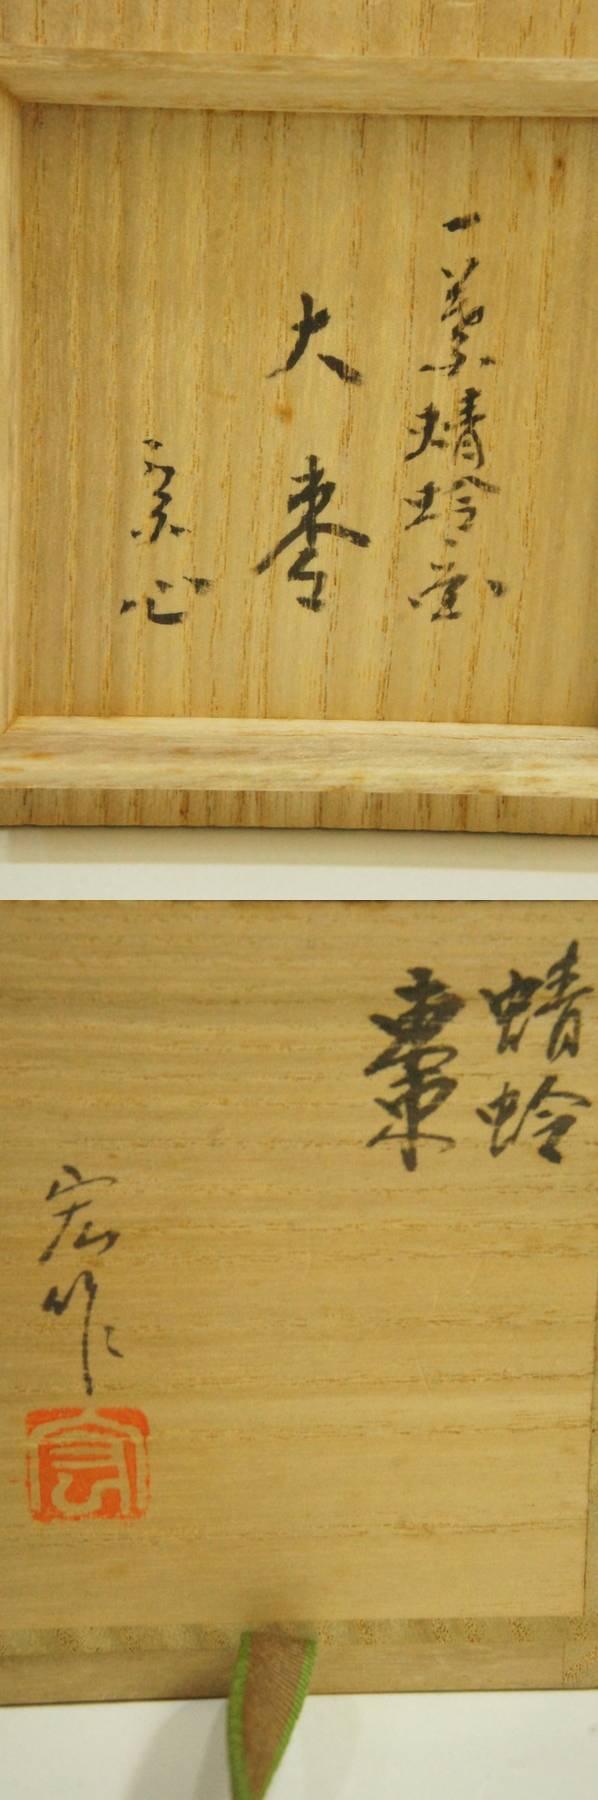 一葉蜻蛉画
大棗
宗心
蜻蛉
棗
宏作
宏